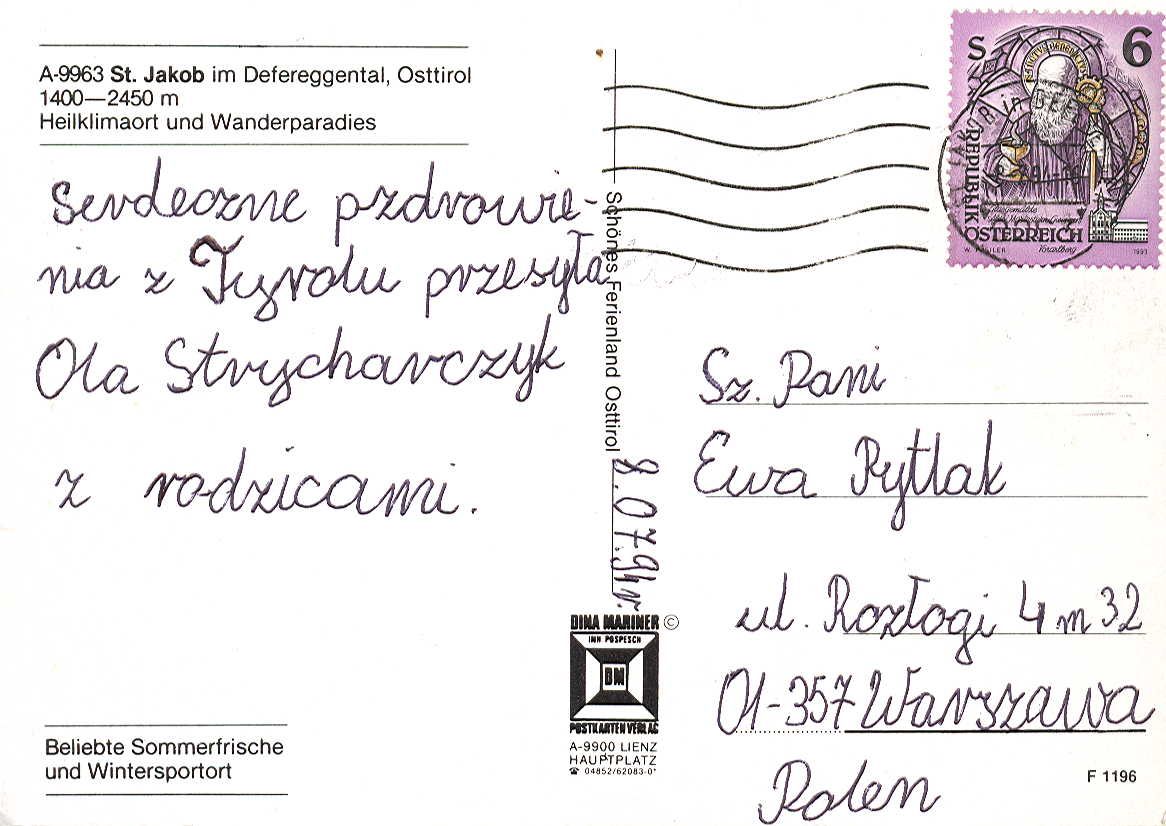 A-9963 St. Jakob im Defereggental, Osttirol
1400—2450 m
Heilklimaort und Wanderparadies
Serdeczne pzdrowie-
nia z Tyrolu przesyła
Ola Strycharczyk
z rodzicami.
8.07.94r.
Beliebte Sommerfrische
und Wintersportort
Schönes Ferienland Osttirol
DINA MARINER ©
INH POSPESCH
DM
POSTKARTEN VERLAG
A-9900 LIENZ
HAUPTPLATZ
☎ 04852/62083-0*
S 6
REPUBLIK
ÖSTERREICH
Vorarlberg
1993
Sz. Pani
Ewa Rytlak
ul. Rozłogi 4 m 32
01-357 Warszawa
Polen
F 1196